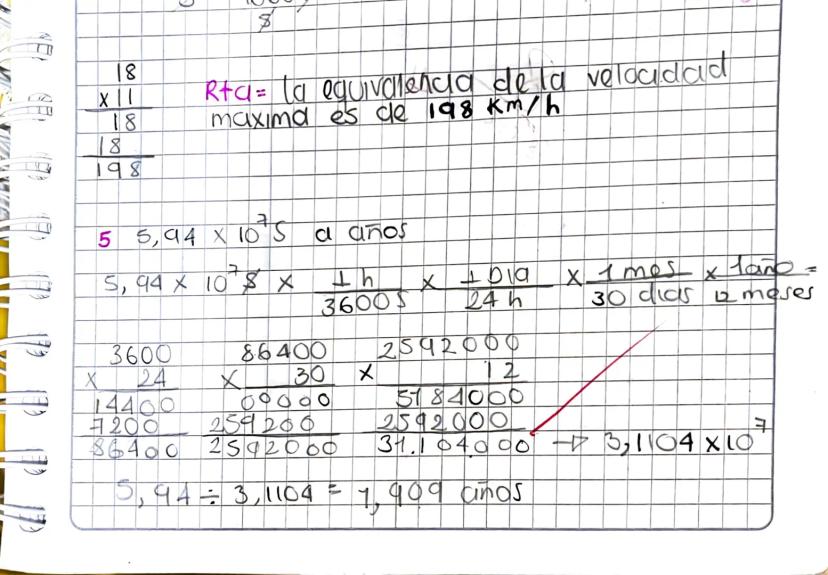 8
18
x 11
18
18
198
Rta= la equivalencia de la velocidad
maxima es de 198 Km/h
5 5,94 x 10⁷S a años
5,94 x 10⁷ s x 1 h/3600 s x 1 Dia/24 h x 1 mes/30 dias x 1 año/12 meses =
3600
x 24
14400
7200
86400
86400
x 30
00000
259200
2592000
2592000
x 12
5184000
2592000
31.104.000 → 3,1104 x 10⁷
5,94 ÷ 3,1104 = 1,909 años